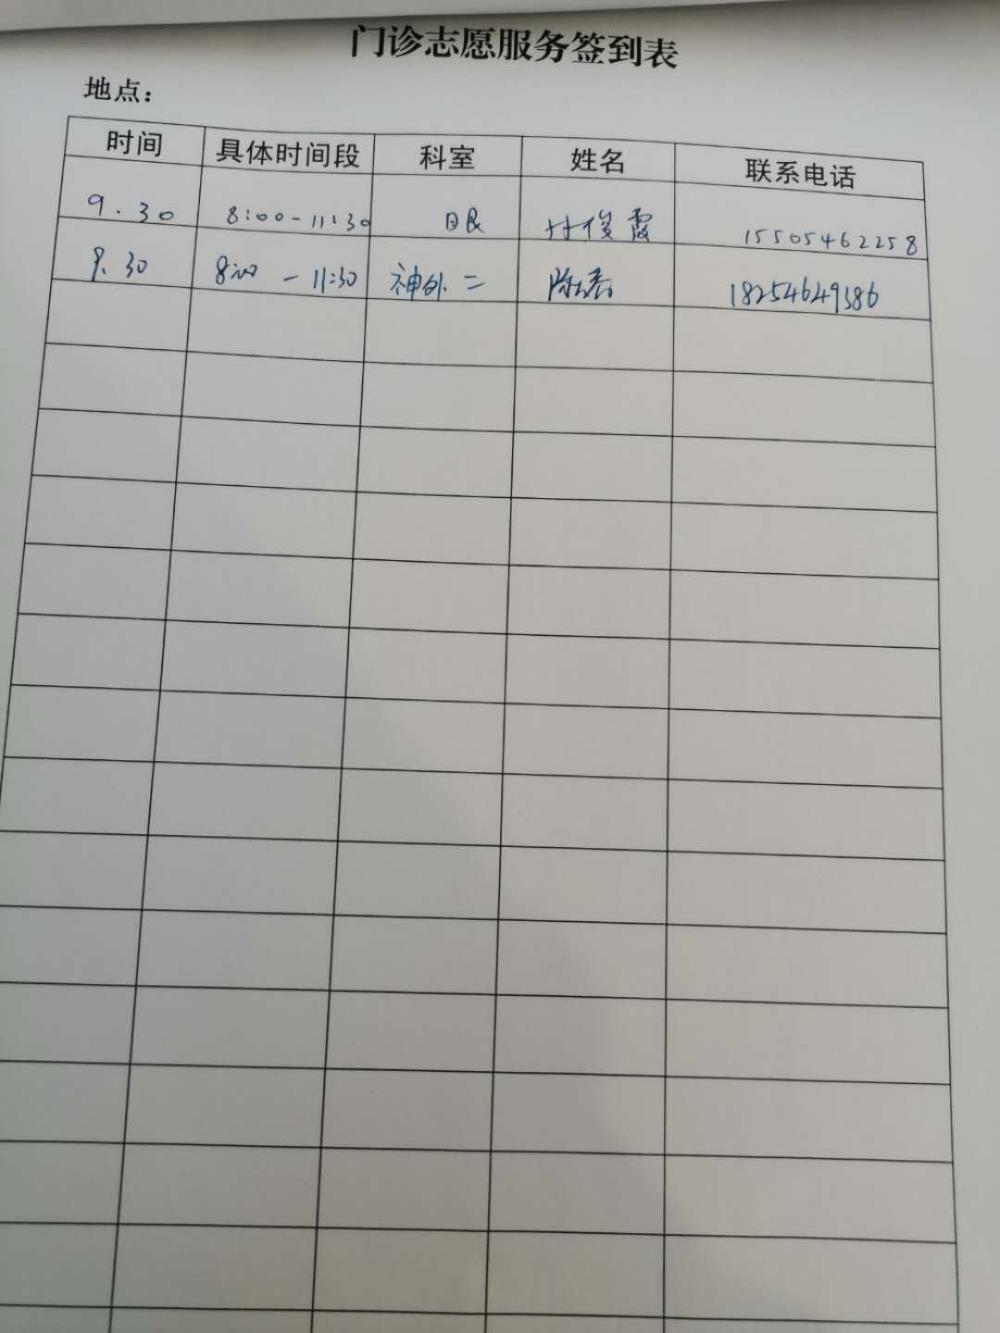 门诊志愿服务签到表
地点：
时间 具体时间段 科室 姓名 联系电话
9.30 8:00-11:30 眼 俊霞 15505462258
9.30 8:00-11:30 神外二 陈 18254649386